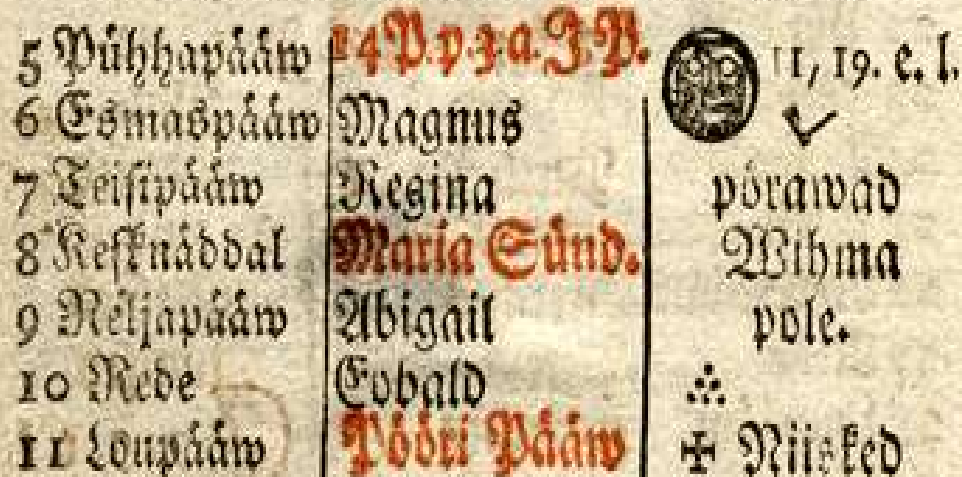 5 Pühhapääw 14 P. p. 3 a. J. P. 11, 19. e. l.
6 Esmaspääw Magnus
7 Teisipääw Regina pörawad
8 Kesknäddal Maria Sünd. Wihma
9 Neljapääw Abigail pole.
10 Rede Eobald
11 Loupääw Pööri Pääw Niisked